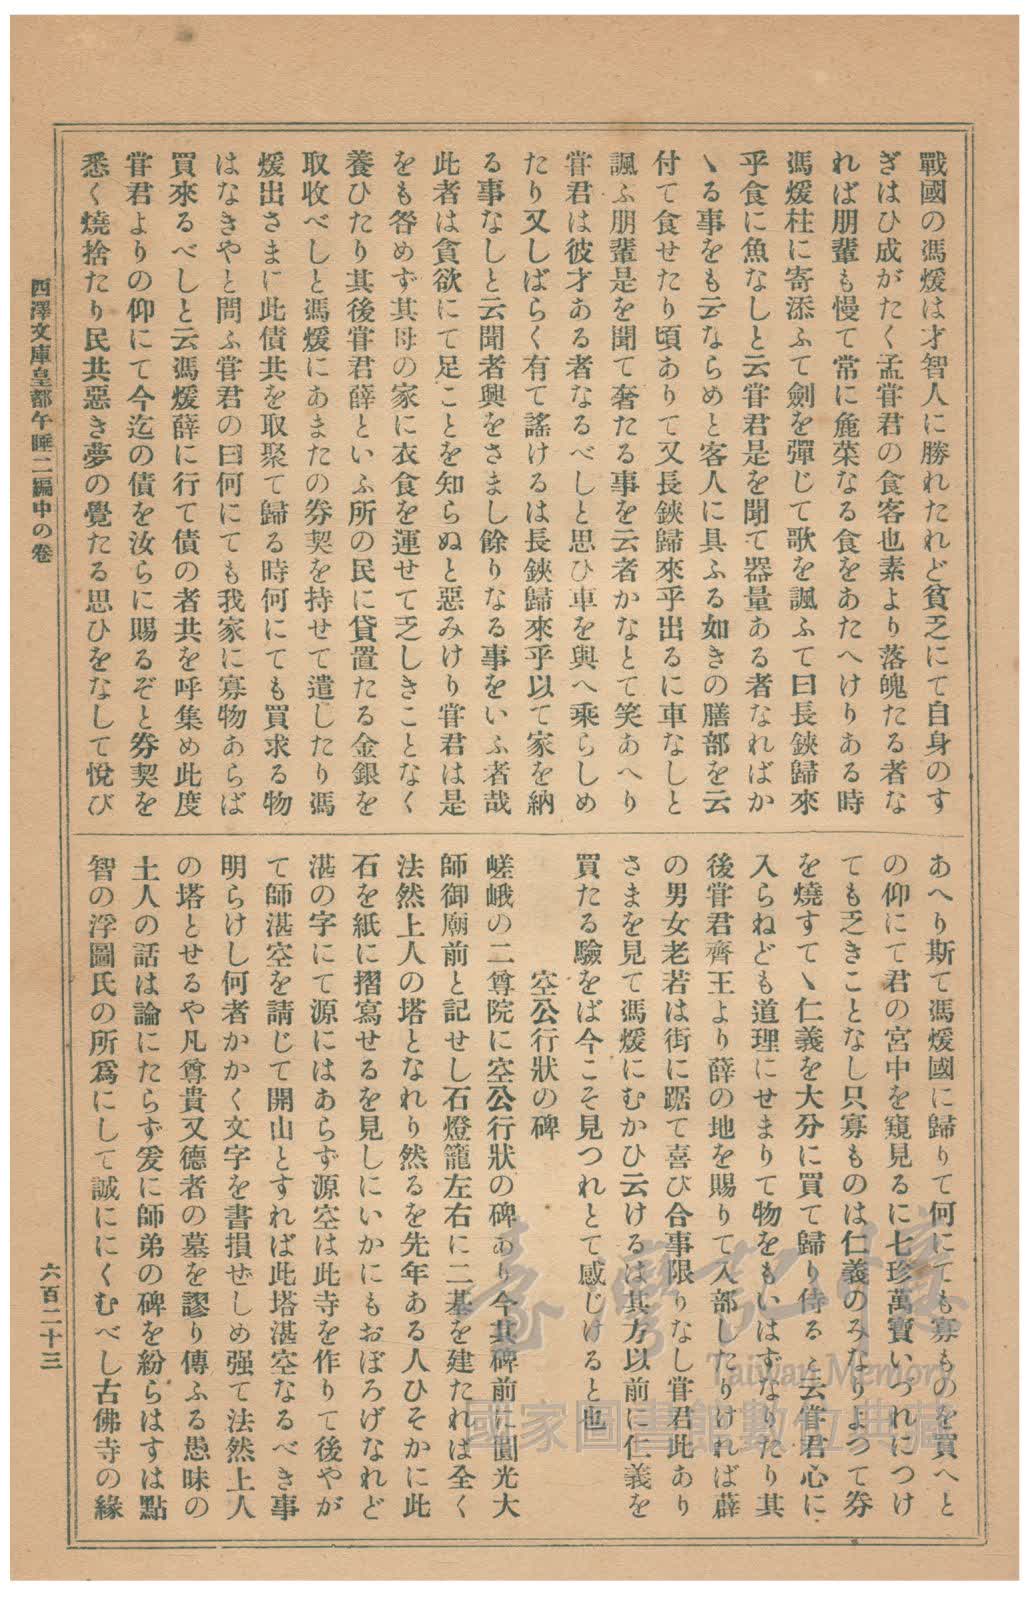 戰國の馮煖は才智人に勝れたれど貧乏にて自身のす
ぎはひ成がたく孟甞君の食客也素より落魄たる者な
れば朋輩も慢て常に麁菜なる食をあたへけりある時
馮煖柱に寄添ふて劍を彈じて歌を諷ふて曰長鋏歸來
乎食に魚なしと云甞君是を聞て器量ある者なればか
ゝる事をも云ならめと客人に具ふる如きの膳部を云
付て食せたり頃ありて又長鋏歸來乎出るに車なしと
諷ふ朋輩是を聞て奢たる事を云者かなとて笑あへり
甞君は彼才ある者なるべしと思ひ車を與へ乘らしめ
たり又しばらく有て謠けるは長鋏歸來乎以て家を納
る事なしと云聞者興をさまし餘りなる事をいふ者哉
此者は貪欲にて足ことを知らぬと惡みけり甞君は是
をも咎めず其母の家に衣食を運せて乏しきことなく
養ひたり其後甞君薛といふ所の民に貸置たる金銀を
取收べしと馮煖にあまたの券契を持せて遣したり馮
煖出さまに此債共を取聚て歸る時何にても買求る物
はなきやと問ふ甞君の曰何にても我家に寡物あらば
買來るべしと云馮煖薛に行て債の者共を呼集め此度
甞君よりの仰にて今迄の債を汝らに賜るぞと券契を
悉く燒捨たり民共惡き夢の覺たる思ひをなして悅び
あへり斯て馮煖國に歸りて何にても寡ものを買へと
の仰にて君の宮中を窺見るに七珍萬寶いづれにつけ
ても乏きことなし只寡ものは仁義のみなりよつて券
を燒すてゝ仁義を大分に買て歸り侍ると云甞君心に
入らねども道理にせまりて物をもいはずなりたり其
後甞君齊王より薛の地を賜りて入部したりければ薜
の男女老若は街に踞て喜び合事限りなし甞君此あり
さまを見て馮煖にむかひ云けるは其方以前に仁義を
買たる驗をば今こそ見つれとて感じけると也
空公行狀の碑
嵯峨の二尊院に空公行狀の碑あり今其碑前に圓光大
師御廟前と記せし石燈籠左右に二基を建たれは全く
法然上人の塔となれり然るを先年ある人ひそかに此
石を紙に摺寫せるを見しにいかにもおぼろげなれど
湛の字にて源にはあらず源空は此寺を作りて後やが
て師湛空を請じて開山とすれば此塔湛空なるべき事
明らけし何者かかく文字を書損せしめ强て法然上人
の塔とせるや凡尊貴又德者の墓を謬り傳ふる愚昧の
土人の話は論にたらず爰に師弟の碑を紛らはすは點
智の浮圖氏の所爲にして誠ににくむべし古佛寺の緣
西澤文庫皇都午睡二編中の卷
六百二十三
臺灣記憶
Taiwan Memory
國家圖書館數位典藏